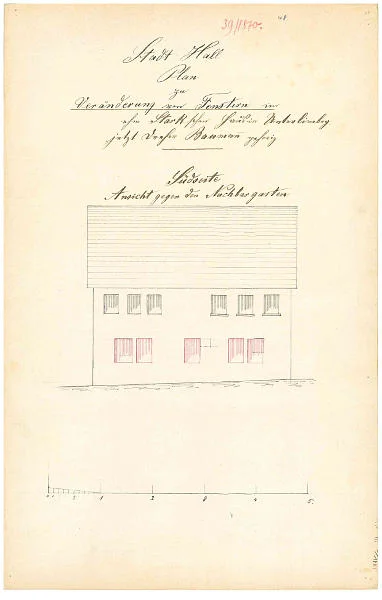 39/1870.
Stadt Hall
Plan
zu
Veränderung von Fenstern im
ehm Stark'schen Haus in Unterlimburg
jetzt Dreher Bauman gehörig
Südseite
Ansicht gegen den Nachbargarten
1 2 3 4 5.